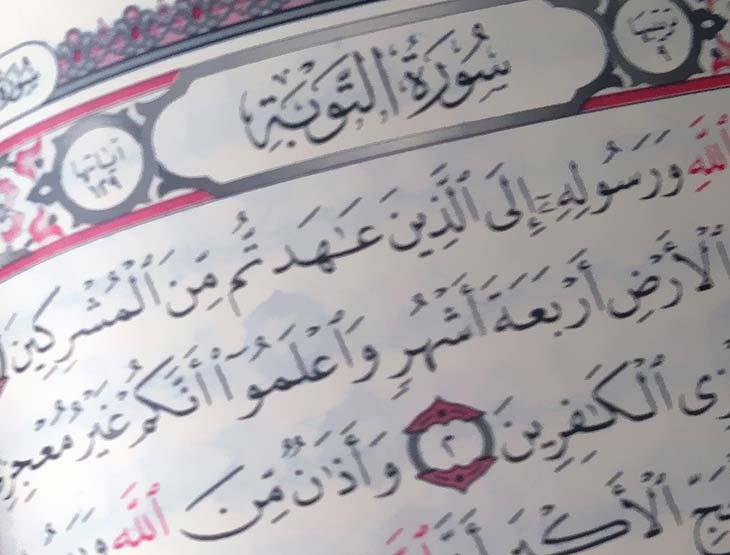 ترتيبها
٩
سُورَةُ التَّوْبَةِ
آياتها
١٢٩
ٱللَّهِ وَرَسُولِهِۦٓ إِلَى ٱلَّذِينَ عَـٰهَدتُّم مِّنَ ٱلْمُشْرِكِينَ
ٱلْأَرْضِ أَرْبَعَةَ أَشْهُرٍ وَٱعْلَمُوٓا۟ أَنَّكُمْ غَيْرُ مُعْجِزِ
ٱلْكَـٰفِرِينَ ٢ وَأَذَٰنٌ مِّنَ ٱللَّهِ
ٱلْأَكْبَرِ